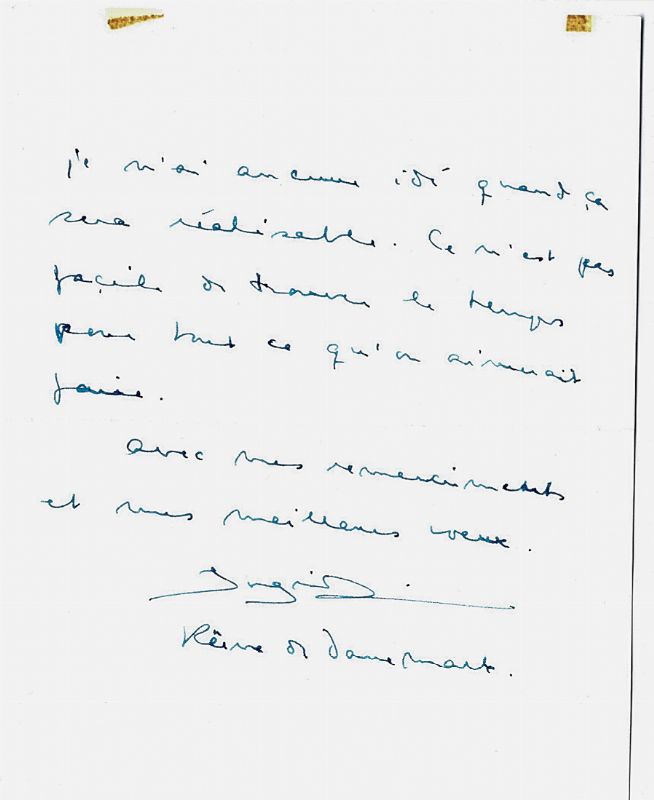 je n'ai aucune idé quand ça
sera réalisable. Ce n'est pas
façile de trouver le temps
pour tout ce qu'on aimerait
faire.
avec mes remerciments
et mes meilleurs voeux.
Ingrid
Rëine de Danemark.